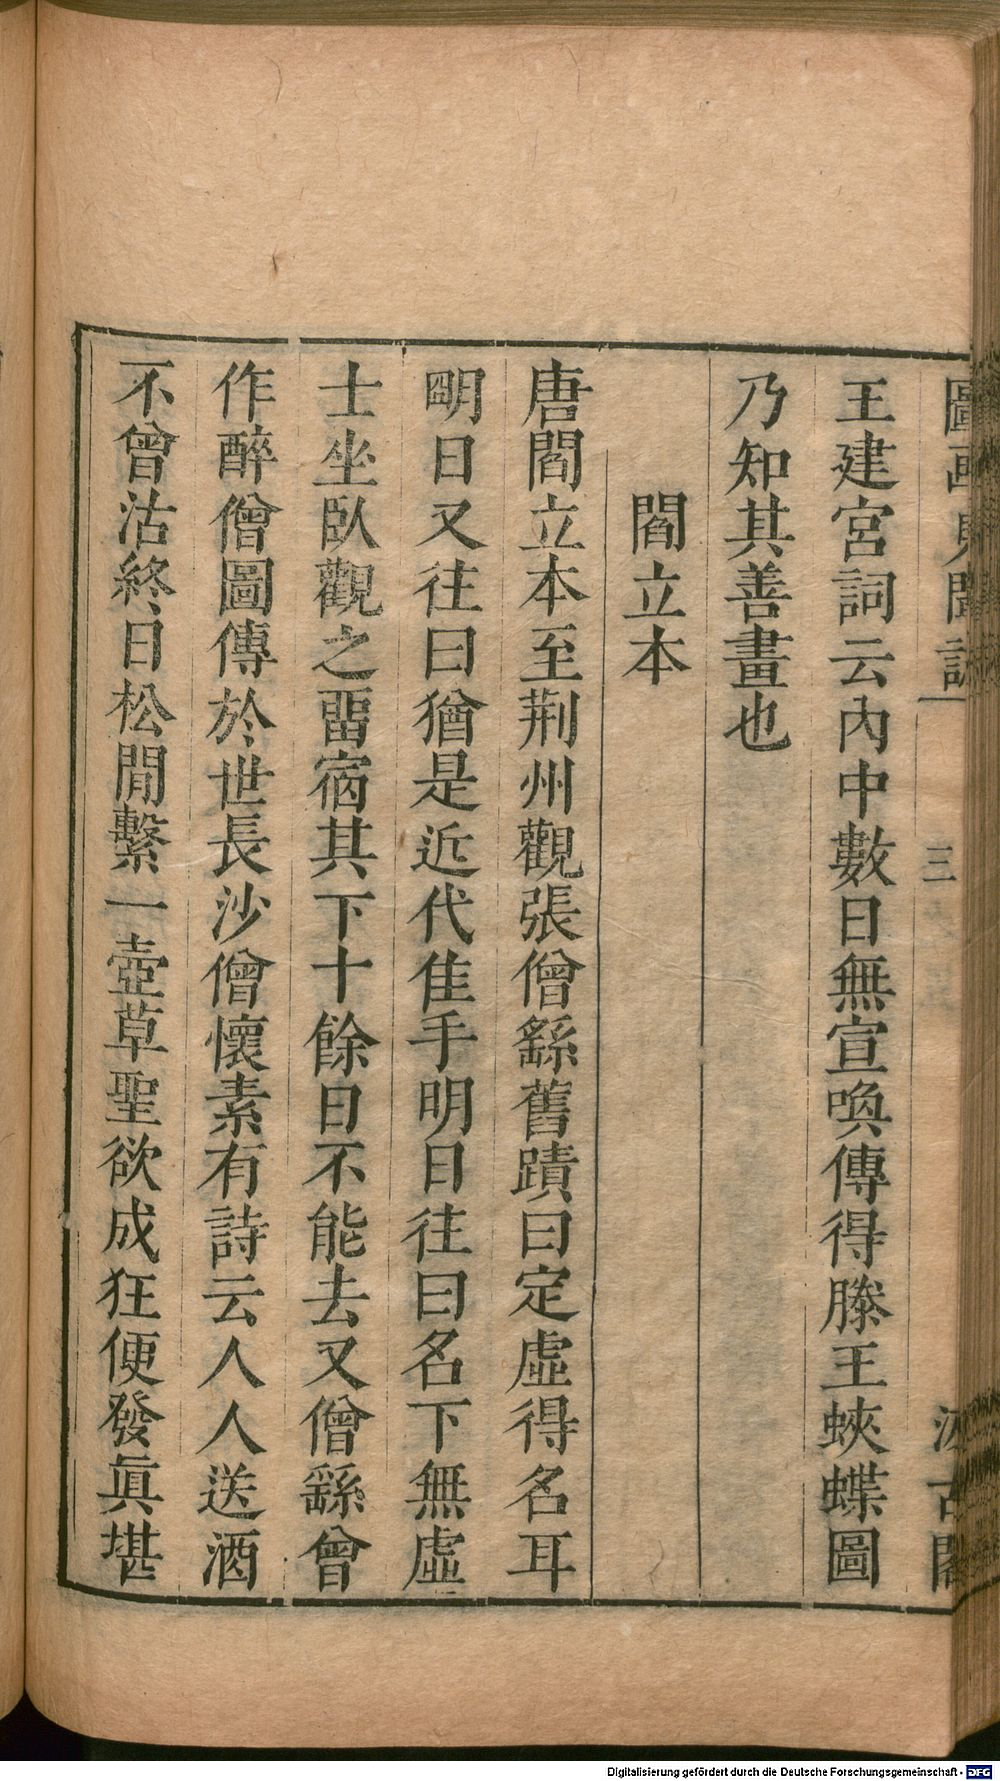 圖畫見聞誌 三 汲古閣
王建宮詞云內中數日無宣喚傳得滕王蛺蝶圖
乃知其善畫也
閻立本
唐閻立本至荆州觀張僧繇舊蹟曰定虛得名耳
明日又往曰猶是近代佳手明日往曰名下無虛
士坐臥觀之畱宿其下十餘日不能去又僧繇曾
作醉僧圖傳於世長沙僧懷素有詩云人人送酒
不曾沽終日松閒繫一壺草聖欲成狂便發眞堪
Digitalisierung gefördert durch die Deutsche Forschungsgemeinschaft - DFG